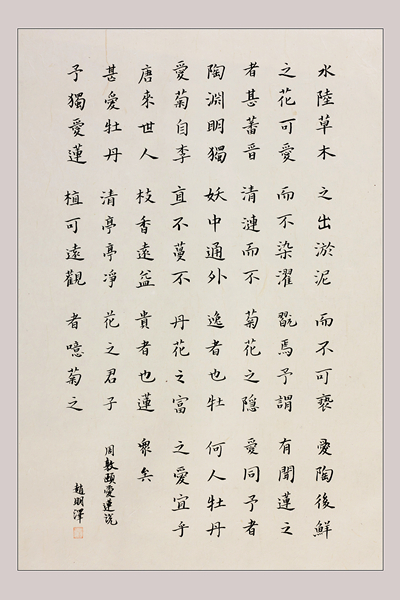 水陸草木
之花可愛
者甚蕃晉
陶淵明獨
愛菊自李
唐來世人
甚愛牡丹
予獨愛蓮
之出淤泥
而不染濯
清漣而不
妖中通外
直不蔓不
枝香遠益
清亭亭淨
植可遠觀
而不可褻
翫焉予謂
菊花之隱
逸者也牡
丹花之富
貴者也蓮
花之君子
者噫菊之
愛陶後鮮
有聞蓮之
愛同予者
何人牡丹
之愛宜乎
衆矣
周敦頤愛蓮說
趙明澤